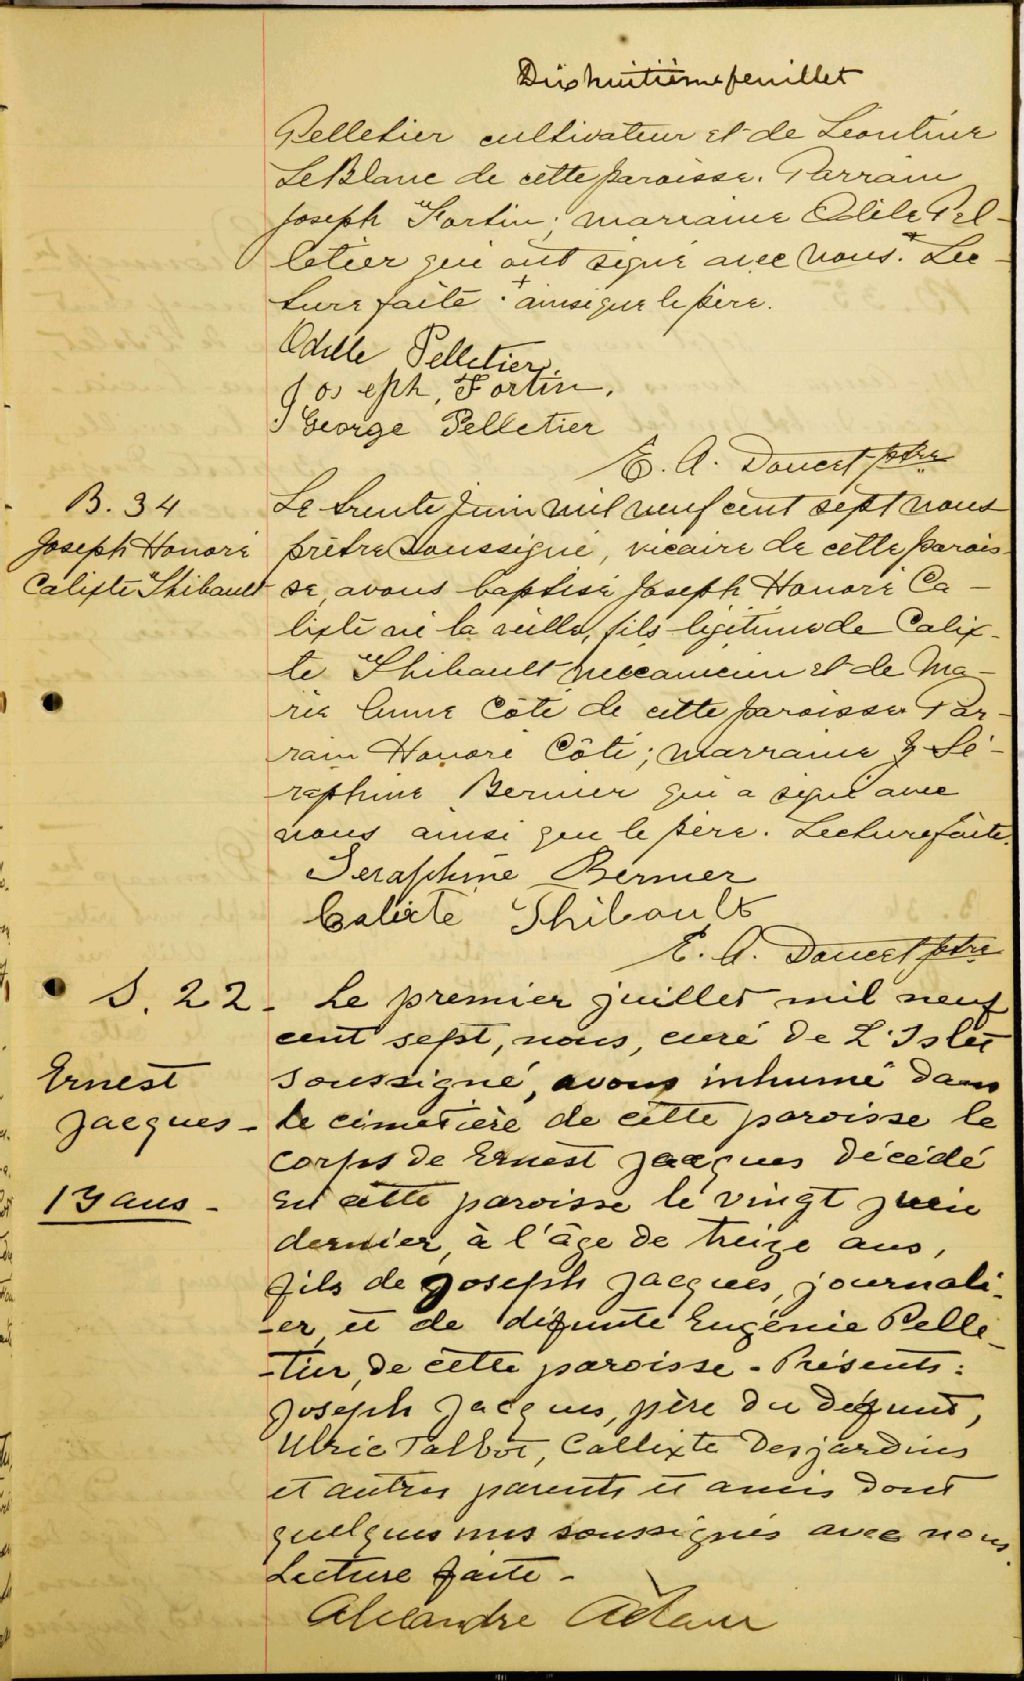 Dixhuitième feuillet
Pelletier cultivateur et de Léontine
LeBlanc de cette paroisse. Parrain
Joseph Fortin; marraine Odile Pel-
letier qui ont signé avec nous.+ Lec-
ture faite. + ainsi que le père.
Odille Pelletier
Joseph, Fortin.
George Pelletier
E. A. Doucet ptre
B. 34
Joseph Honoré
Calixte Thibault
Le trente juin mil neuf cent sept nous
prêtre soussigné, vicaire de cette parois-
se, avons baptisé Joseph Honoré Ca-
lixte né la veille, fils légitime de Calix-
te Thibault mécanicien et de Ma-
rie Anne Côté de cette paroisse Par-
rain Honoré Côté; marraine Sé-
raphine Bernier qui a signé avec
nous ainsi que le père. Lecture faite.
Seraphine Bernier
Calixte Thibault
E. A. Doucet ptre
S. 22 -
Ernest
Jacques -
13 ans -
Le premier juillet mil neuf
cent sept, nous, curé de L'Islet
soussigné, avons inhumé dans
le cimetière de cette paroisse le
corps de Ernest Jacques décédé
en cette paroisse le vingt juin
dernier, à l'âge de treize ans,
fils de Joseph Jacques, journali-
-er, et de défunte Eugénie Pelle-
-tier, de cette paroisse - Présents:
Joseph Jacques, père du défunt,
Ulric Talbot, Callixte Desjardins
et autres parents et amis dont
quelques uns soussignés avec nous.
Lecture faite -
Alexandre Adam